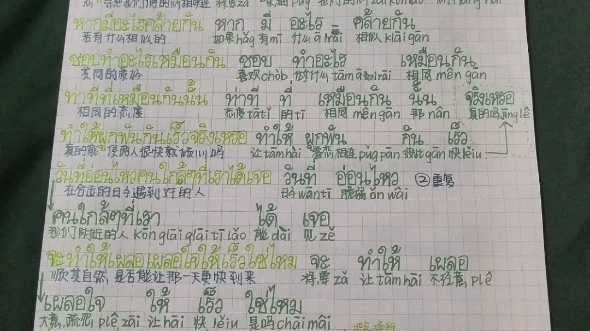 หากมีอะไรคล้ายกัน หาก มี อะไร คล้ายกัน
若有什么相似的 如果hǎg 有mī 什么ā rāi 相似 klāi gān
ชอบทำอะไรเหมือนกัน ชอบ ทำอะไร เหมือนกัน
共同的爱好 喜欢chòb 做什么tām ā rāi 相同 mēn gān
ท่าทีที่เหมือนกันนั้น ท่าที ที่ เหมือนกัน นั้น จริงเหรอ
相同的态度 态度tātī 的tī 相同 mēn gān 那nān 真的吗jīng lě
ทำให้ผูกพันกันเร็วจริงเหรอ ทำให้ ผูกพัน กัน เร็ว
让tām hāi pǔg pān gān 快lēiu
วันที่อ่อนไหวคนใกล้ๆที่เราได้เจอ วันที่ อ่อนไหว ②重复
在合适的日子遇到对的人 wāntī 脆弱 ǒn wāi
คนใกล้ๆที่เรา ได้ เจอ
我们附近的人 kōn glāi glāi tī lāo 能 dāi 见 zē
จะทำให้เผลอเผลอใจให้เร็วใช่ไหม จะ ทำให้ เผลอ
顺其自然,是否能让那一天更快到来 将要 zǎ 让 tām hāi 不经意,plē
เผลอใจ ให้ เร็ว ใช่ไหม
plē zāi 让 hāi 快 lēiu 是吗 chāi mǎi